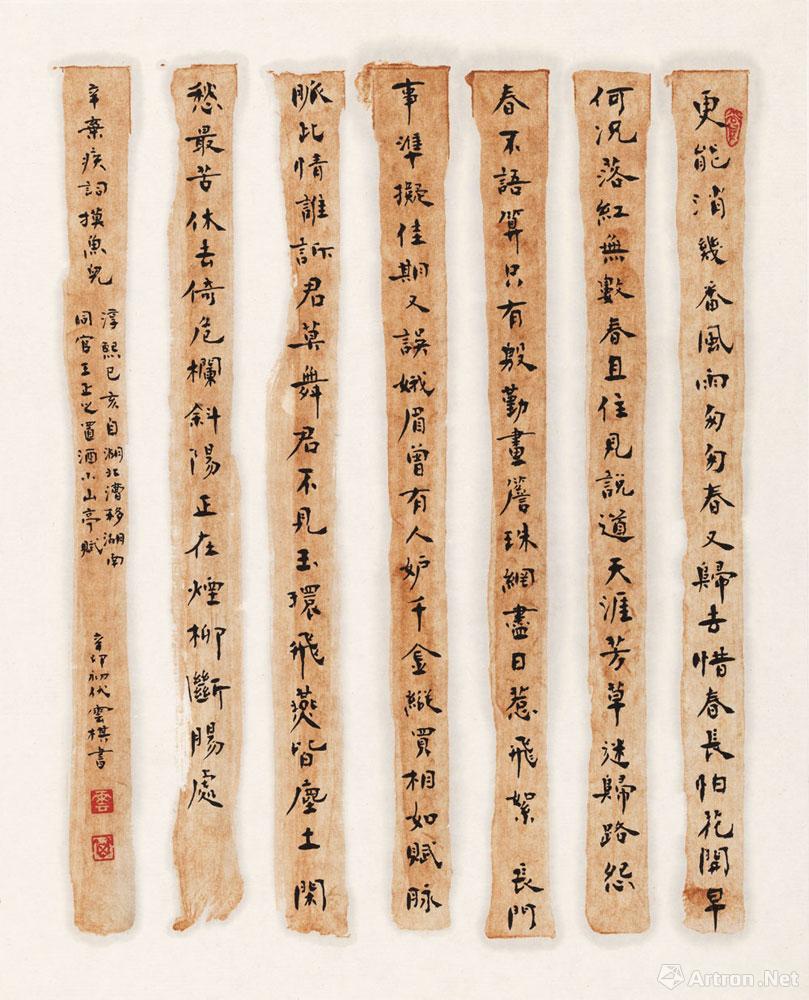 更能消幾番風雨匆匆春又歸去惜春長怕花開早
何況落紅無數春且住見說道天涯芳草迷歸路怨
春不語算只有殷勤畫簷珠網盡日惹飛絮 長門
事準擬佳期又誤娥眉曾有人妒千金縱買相如賦脉
脈比情誰訴君莫舞君不見玉環飛燕皆塵土 閑
愁最苦休去倚危欄斜陽正在煙柳斷腸處
辛棄疾詞摸魚兒
淳熙已亥自湖北漕移湖南
同官王正之置酒小山亭賦
辛卯初伏雲棋書
Artron.Net